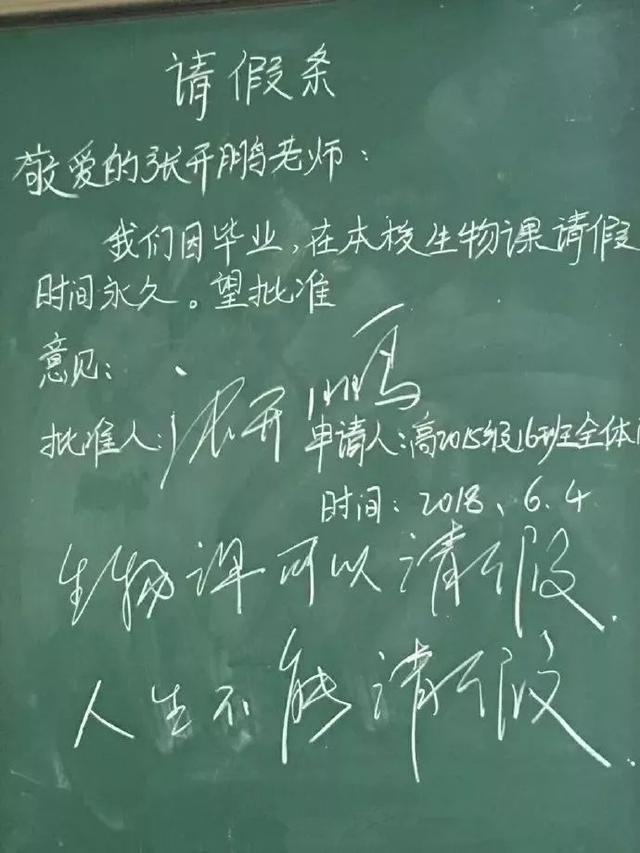 请假条
敬爱的张开鹏老师：
我们因毕业，在本校生物课请假
时间永久。望批准
意见：
批准人：张开鹏 申请人：高2015级16班全体
时间：2018、6.4
生物课可以请假.
人生不能请假.